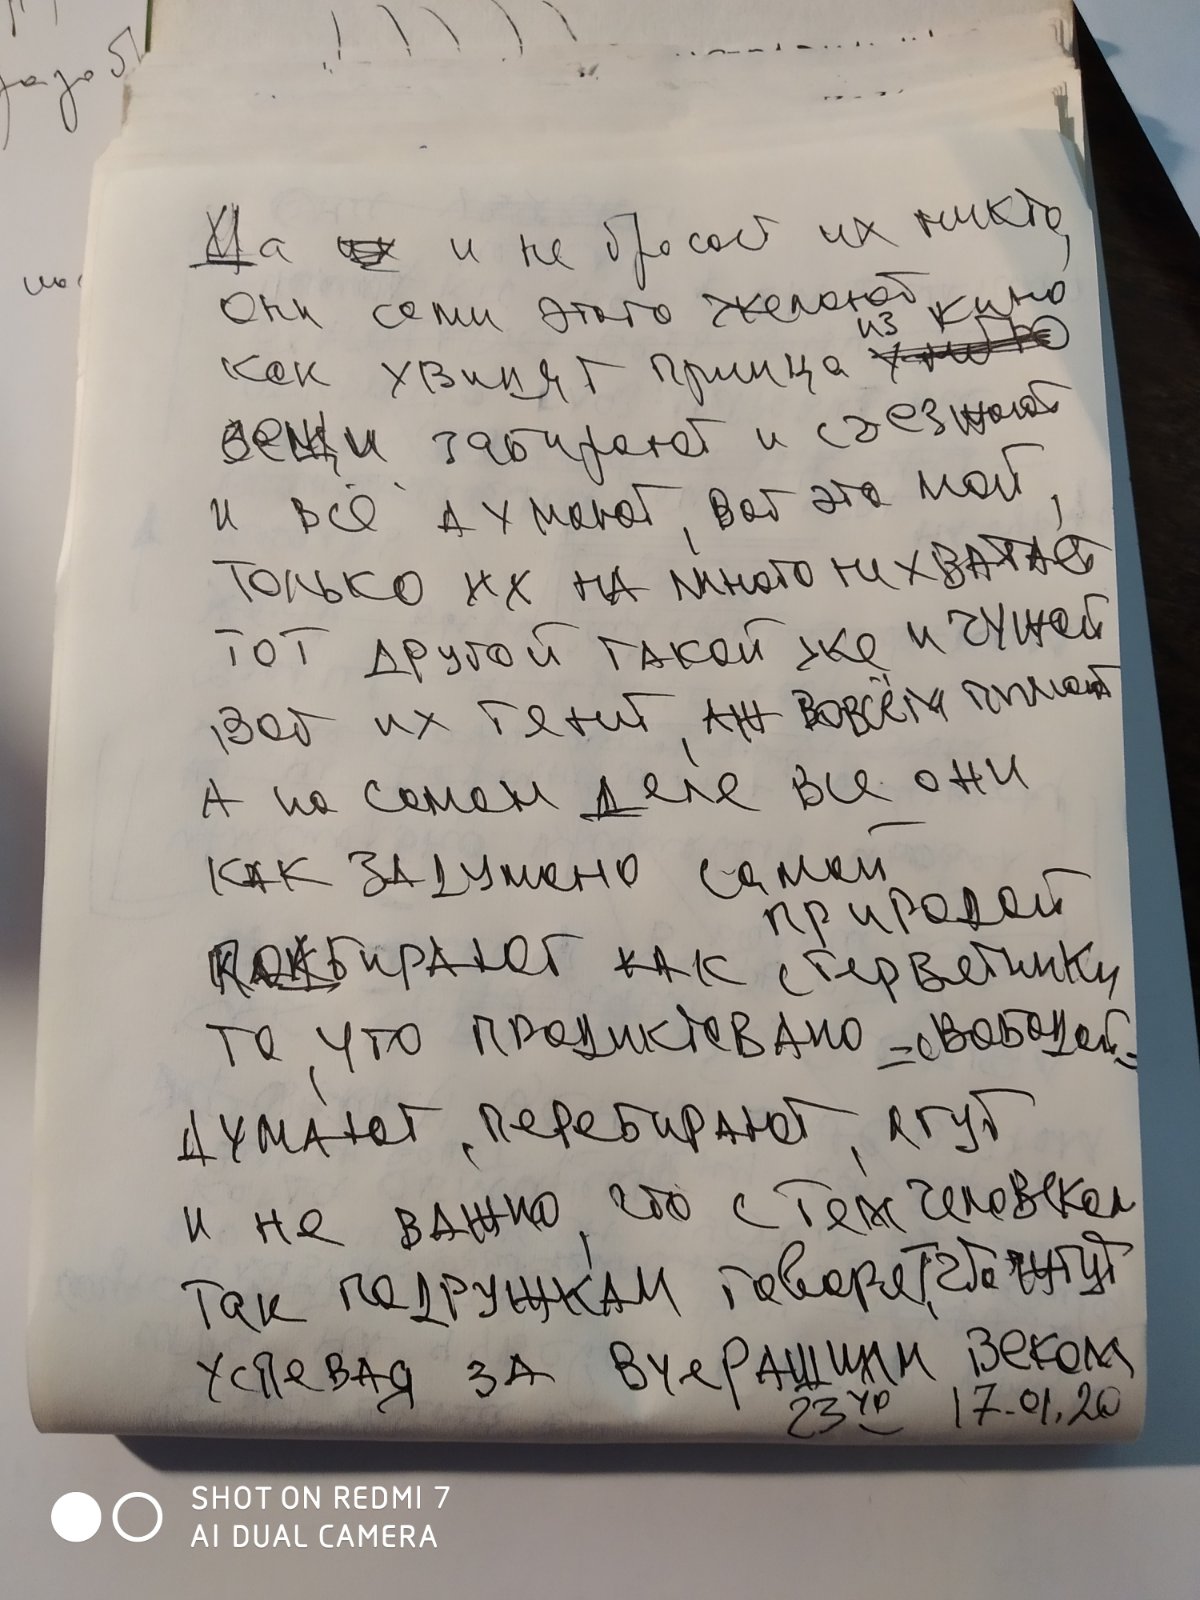 Да и не бросает их никто,
Они сами этого желают
из кино
как увидят принца
вещи забирают и съезжают
и всё думают, вот это мой,
только их на много не хватает
тот другой такой же и чужой
Вот их тянет, аж вовсём
А на самом деле все они
как задумано самой
природой
бирают как стерветники
то, что продиктовано =свободой=
думают, перебирают, лгут
и не важно, что с тем человеком
Так подружкам говорят, что
успевая за вчерашним веком
23 ча 17.01.20
SHOT ON REDMI 7
AI DUAL CAMERA